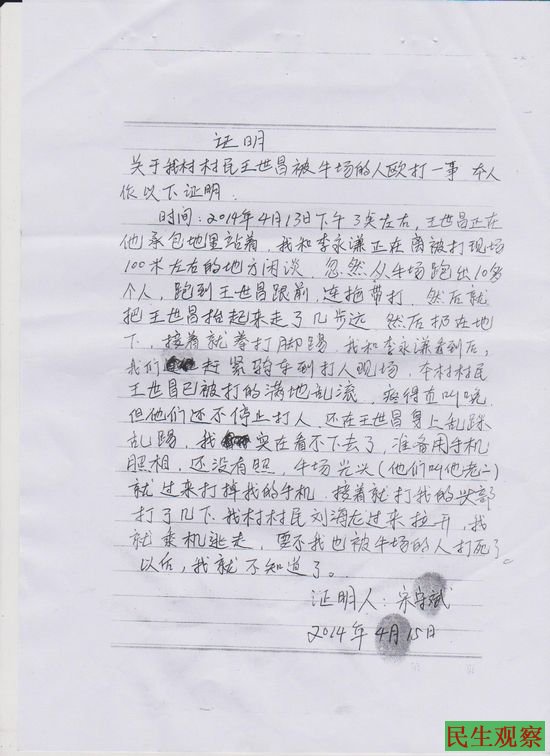 证明
关于我村村民王世昌被牛场的人欧打一事 本人
作以下证明.
时间:2014年4月13日下午3点左右,王世昌正在
他承包地里站着,我和李永谦正在离被打现场
100米左右的地方闲谈,忽然从牛场跑出10多
个人,跑到王世昌跟前,连拖带打,然后就
把王世昌抬起来走了几步远 然后扔在地
下,接着就拳打脚踢,我和李永谦看到后,
我们赶紧骑车到打人现场,本村村民
王世昌已被打的满地乱滚,疼得直叫唤,
但他们还不停止打人,还在王世昌身上乱跺
乱踢,我实在看不下去了,准备用手机
照相,还没有照,牛场光头(他们叫他老二)
就过来打掉我的手机,接着就打我的头部
打了几下.我村村民刘海龙过来拉开,我
就乘机逃走,要不我也被牛场的人打死了。
以后,我就不知道了。
证明人:宋守斌
2014年4月15日
民生观察